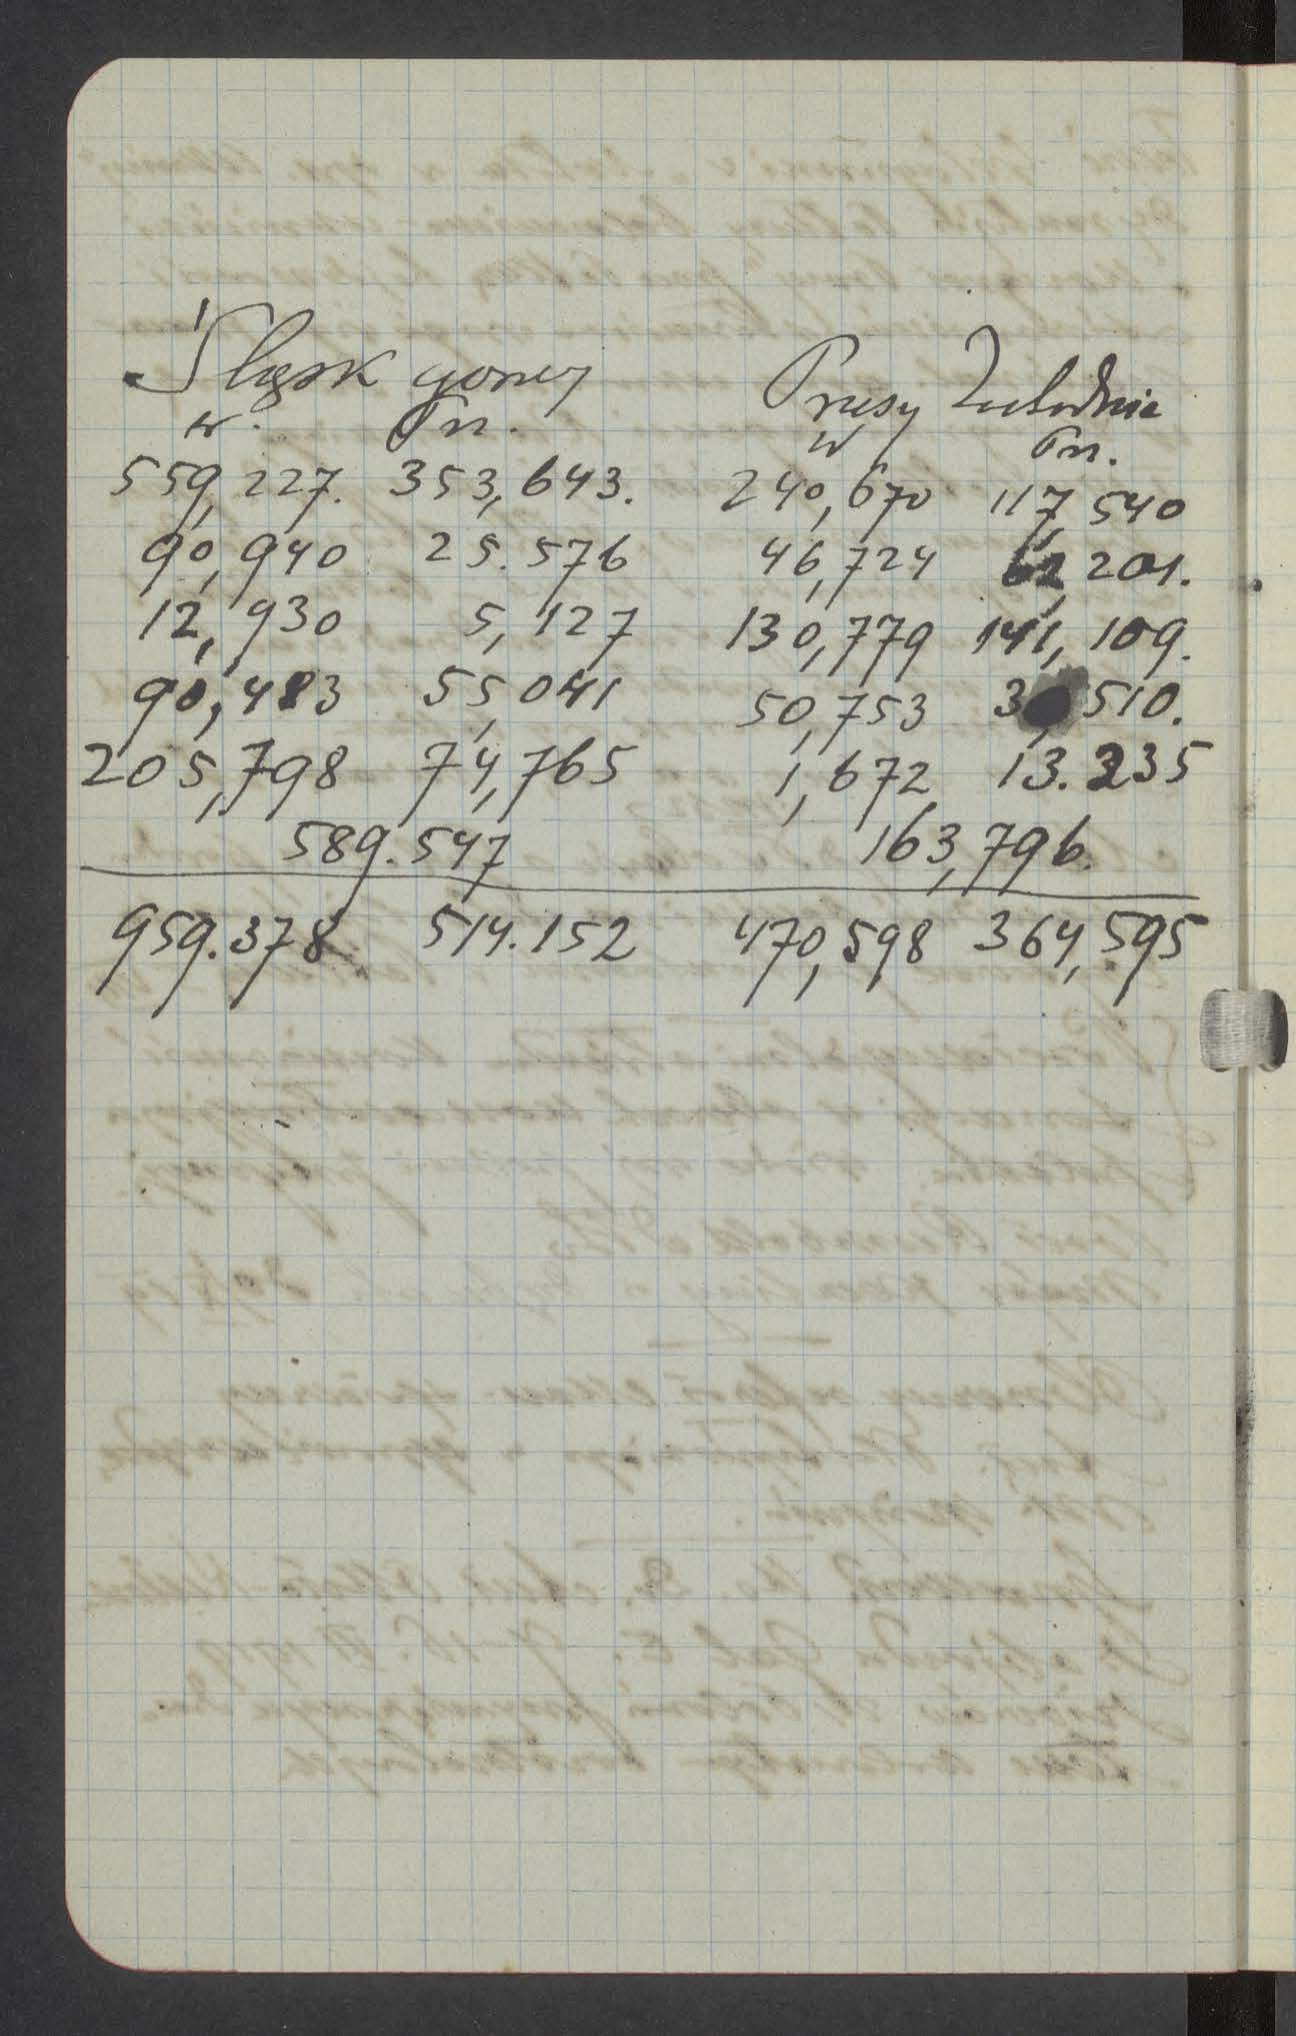 Śląsk gorny Prusy Zachodnie
w. Pn. w Pn.
559,227. 353,643. 240,670 117,540
90,940 25.576 46,724 62,201.
12,930 5,127 130,779 141,109.
90,483 55,041 50,753 510.
205,798 74,765 1,672 13.235
589.547 163,796.
959.378 514.152 470,598 364,595